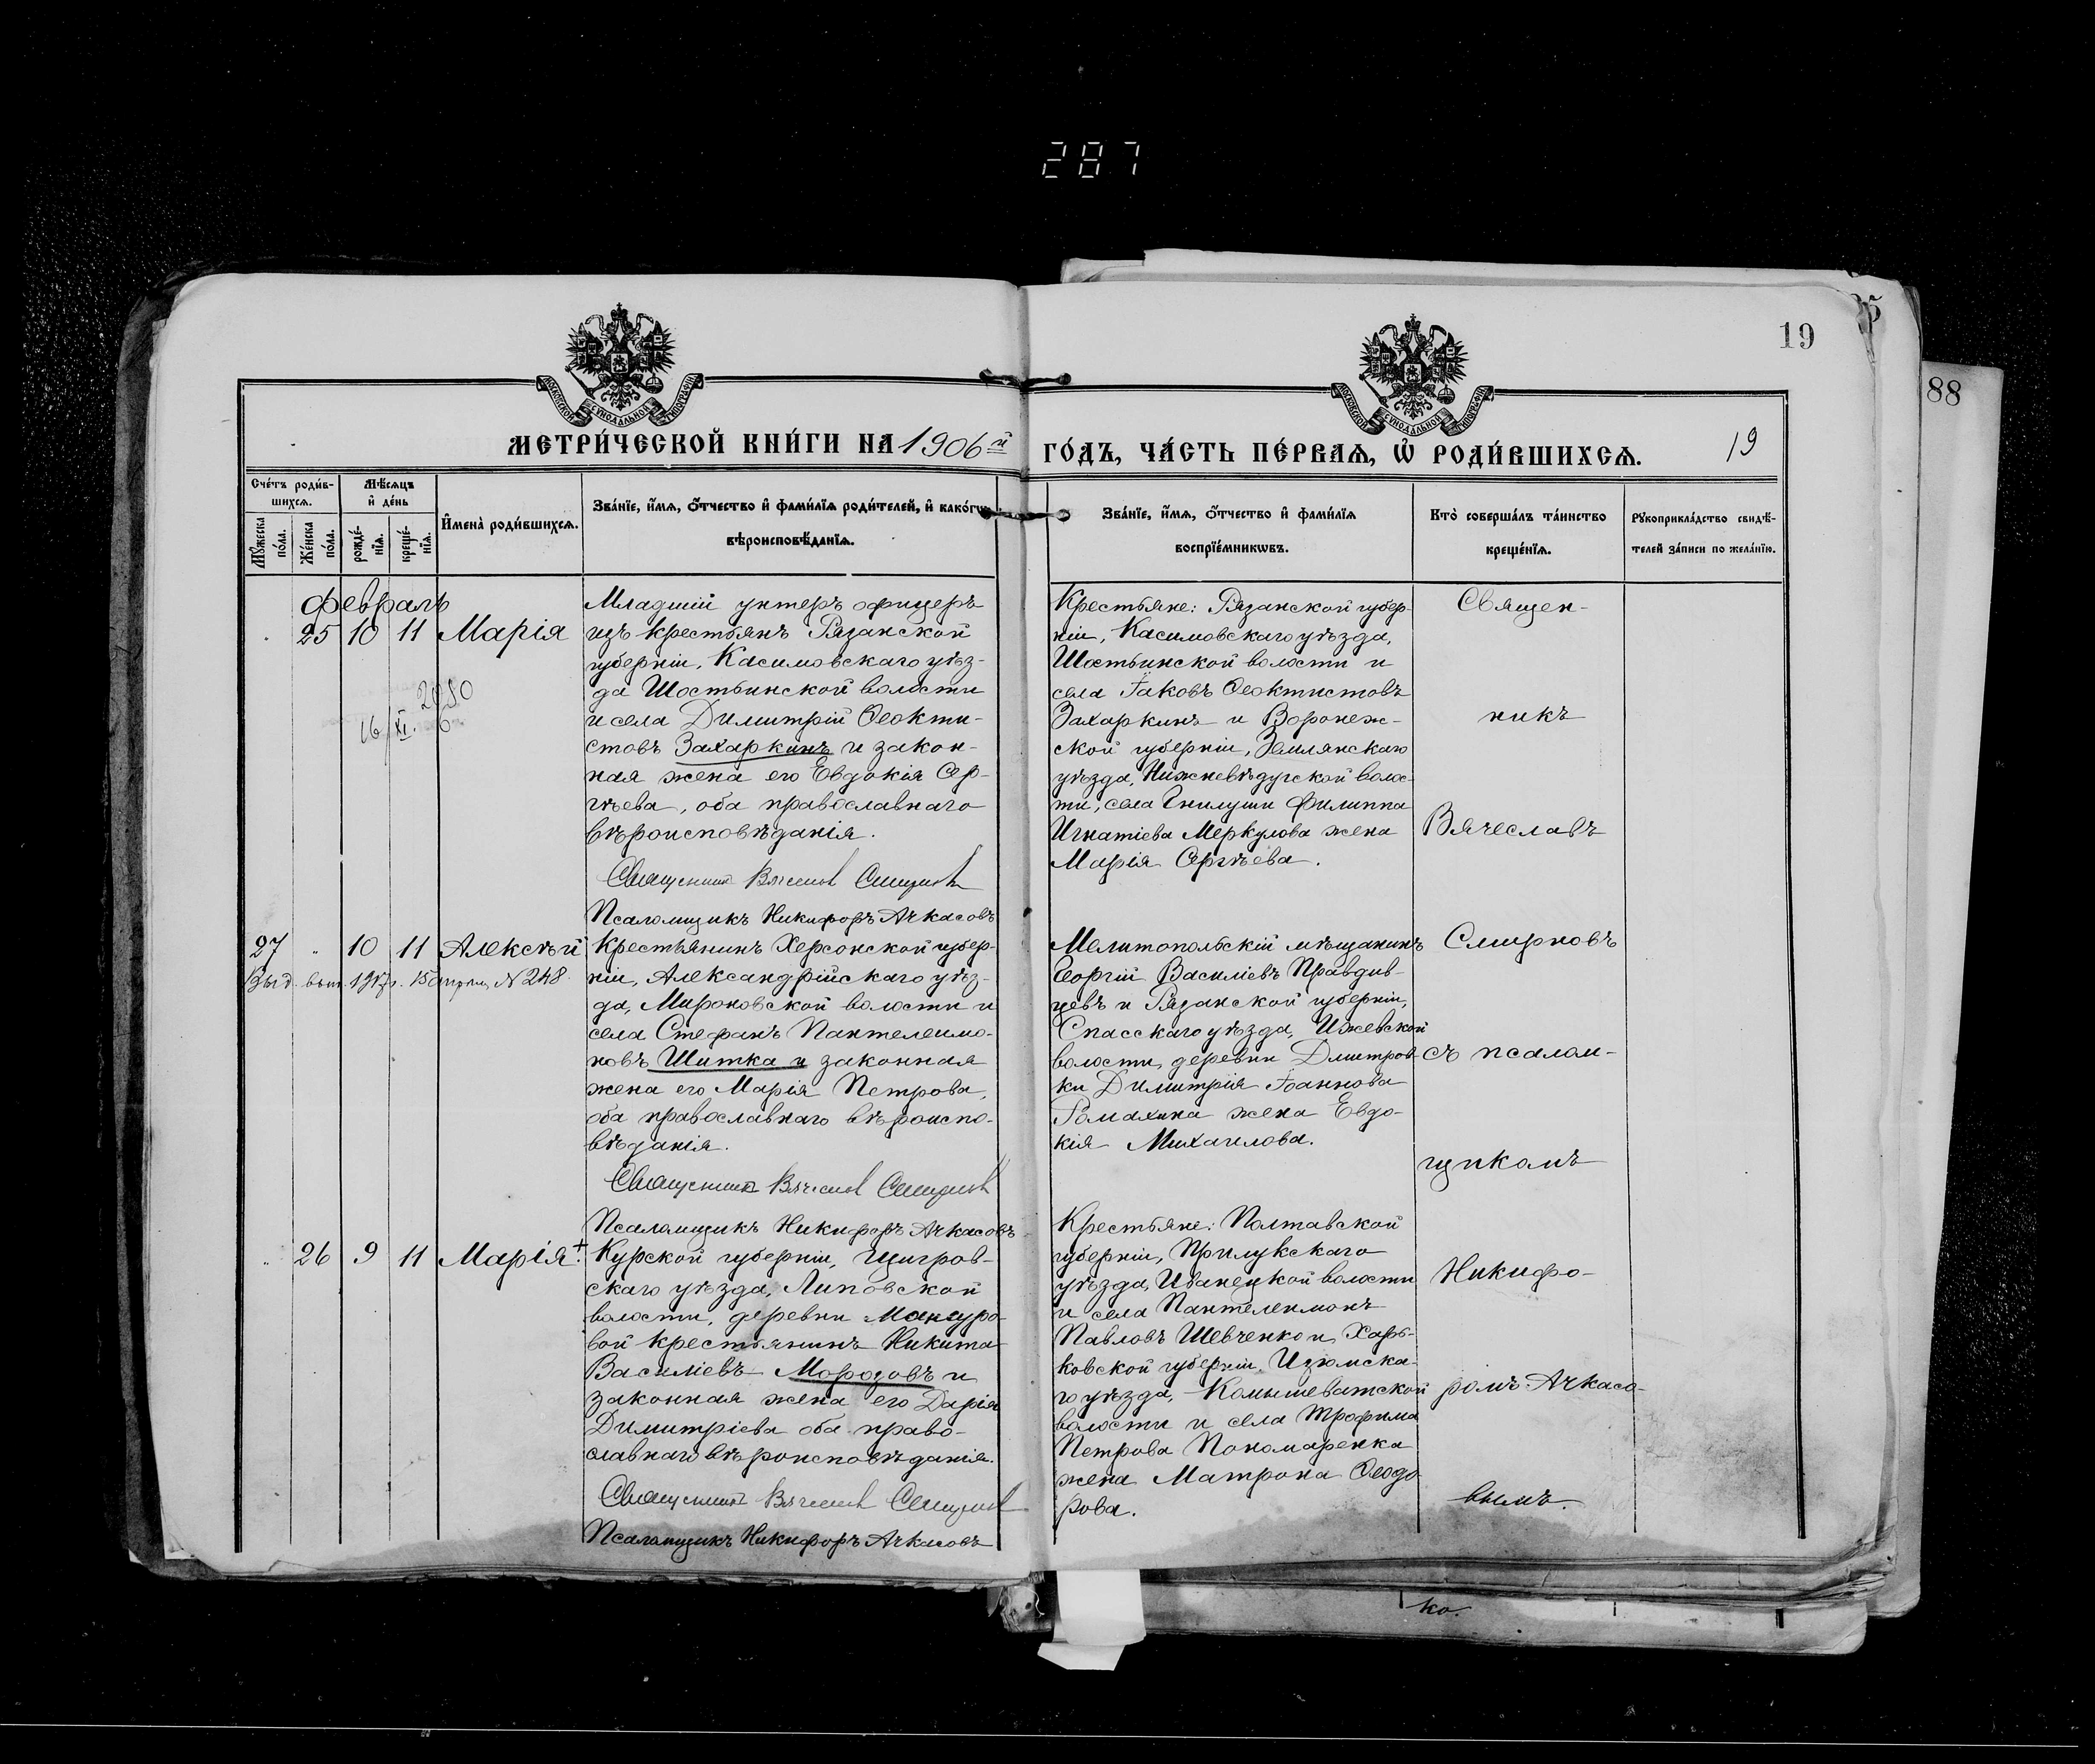 287
19
88
МЕТРИ́ЧЕСКОЙ КНИ́ГИ НА 1906й ГО́ДЪ, ЧА́СТЬ ПЕ́РВАѦ, Ѽ РОДИ́ВШИХСѦ.
19
Сче́тъ роди́в-
шихсѧ.
Мѣ́сѧцъ
и҆ де́нь
Мꙋ́жеска по́ла.
Же́нска по́ла.
рожде́-
нїѧ.
креще́-
нїѧ.
И҆мена̀ роди́вшихсѧ.
Зва́нїе, и҆́мѧ, ѻ҆́тчество и҆ фами́лїѧ роди́телей, и҆ како́гѡ
вѣроисповѣ́данїѧ.
Зва́нїе, и҆́мѧ, ѻ҆́тчество и҆ фами́лїѧ
воспрїе́мникѡвъ.
Кто̀ соверша́лъ та́инство
креще́нїѧ.
Рꙋкоприкла́дство свидѣ́-
телей за́писи по жела́нїю.
Февраль
25 10 11 Марія
Младшій унтеръ офицеръ
изъ крестьянъ Рязанской
губерніи, Касимовскаго уѣз-
да Шостьинской волости
и села Димитрій Ѳеокти-
стовъ Захаркинъ и закон-
ная жена его Евдокія Сер-
гѣева, оба православнаго
вѣроисповѣданія.
Священникъ Вячеслав Смирнов
Псаломщикъ Никифоръ Ачкасовъ
Крестьяне: Рязанской губер-
ніи, Касимовскаго уѣзда,
Шостьинской волости и
села Іаковъ Ѳеоктистовъ
Захаркинъ и Воронеж-
ской губерніи, Землянскаго
уѣзда, Нижневѣдугской волос-
ти, села Гнилуши Филиппа
Игнатіева Меркулова жена
Марія Сергѣева.
Священ-
никъ
Вячеславъ
Смирновъ
съ псалом-
щикомъ
Никифо-
ромъ Ачкасо-
вымъ.
27 " 10 11 Алексѣй
Выд. вып. 1917г. 15 апрѣл. N 248.
Крестьянинъ Херсонской губер-
ніи, Александрійскаго уѣз-
да, Мироновской волости и
села Стефанъ Пантелеимо-
новъ Шитка и законная
жена его Марія Петрова,
оба православнаго вѣроиспо-
вѣданія.
Священникъ Вячеслав Смирнов
Псаломщикъ Никифоръ Ачкасовъ
Мелитопольскій мѣщанинъ
Георгій Василіевъ Правдив-
цевъ и Рязанской губерніи,
Спасскаго уѣзда, Ижевской
волости, деревни Дмитров-
ки Димитрія Іоаннова
Ромахина жена Евдо-
кія Михаилова.
26 9 11 Марія+
Курской губерніи, Щигров-
скаго уѣзда, Липовской
волости, деревни Мансуро-
вой крестьянинъ Никита
Василіевъ Морозовъ и
законная жена его Дарія
Димитріева оба право-
славнаго вѣроисповѣданія.
Священникъ Вячеслав Смирнов
Псаломщикъ Никифоръ Ачкасовъ
Крестьяне: Полтавской
губерніи, Прилукскаго
уѣзда, Иваницкой волости
и села Пантелеимонъ
Павловъ Шевченко и Харь-
ковской губерніи, Изюмска-
го уѣзда, Комышеватской
волости и села Трофима
Петрова Пономаренка
жена Матрона Ѳеодо-
рова.
ко.